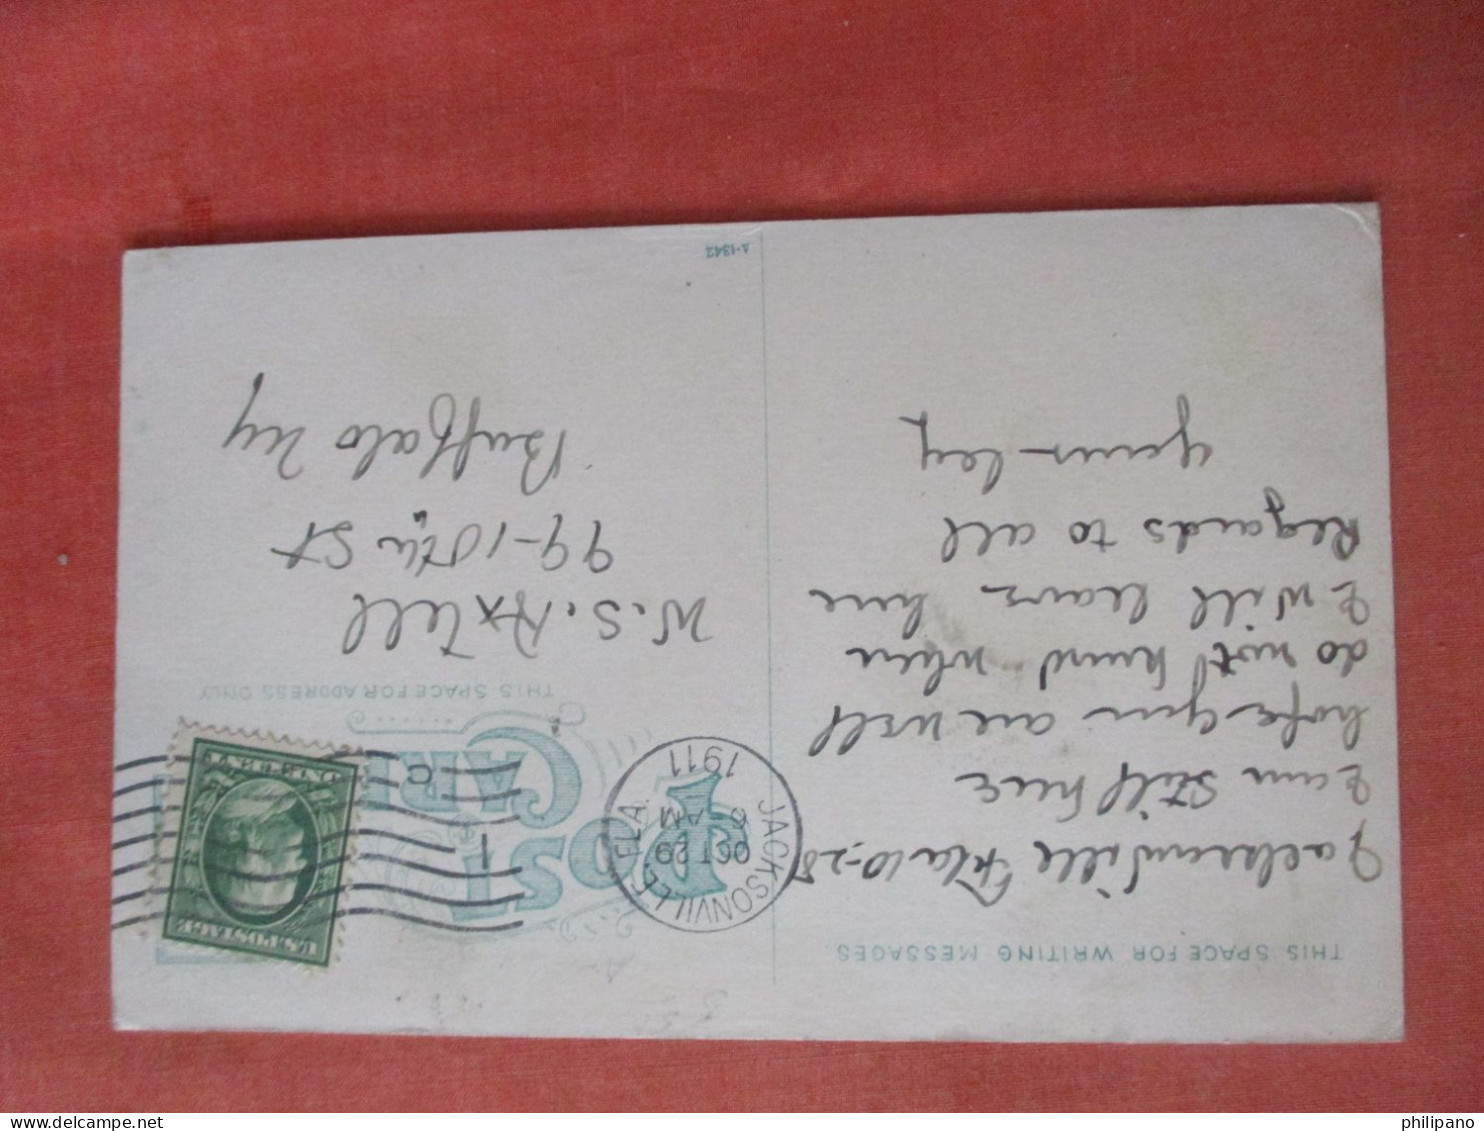 THIS SPACE FOR WRITING MESSAGES.
Jacksonville Fla 10-28
I am still here
hope you are well
do not know when
I will leave here
Regards to all
yours
POST CARD
THIS SPACE FOR ADDRESS ONLY
JACKSONVILLE, FLA.
OCT 29
6 AM
1911
1
C
U.S. POSTAGE
ONE CENT
W. S. Axtell
99-10th St
Buffalo Ny
A-1342
philipano